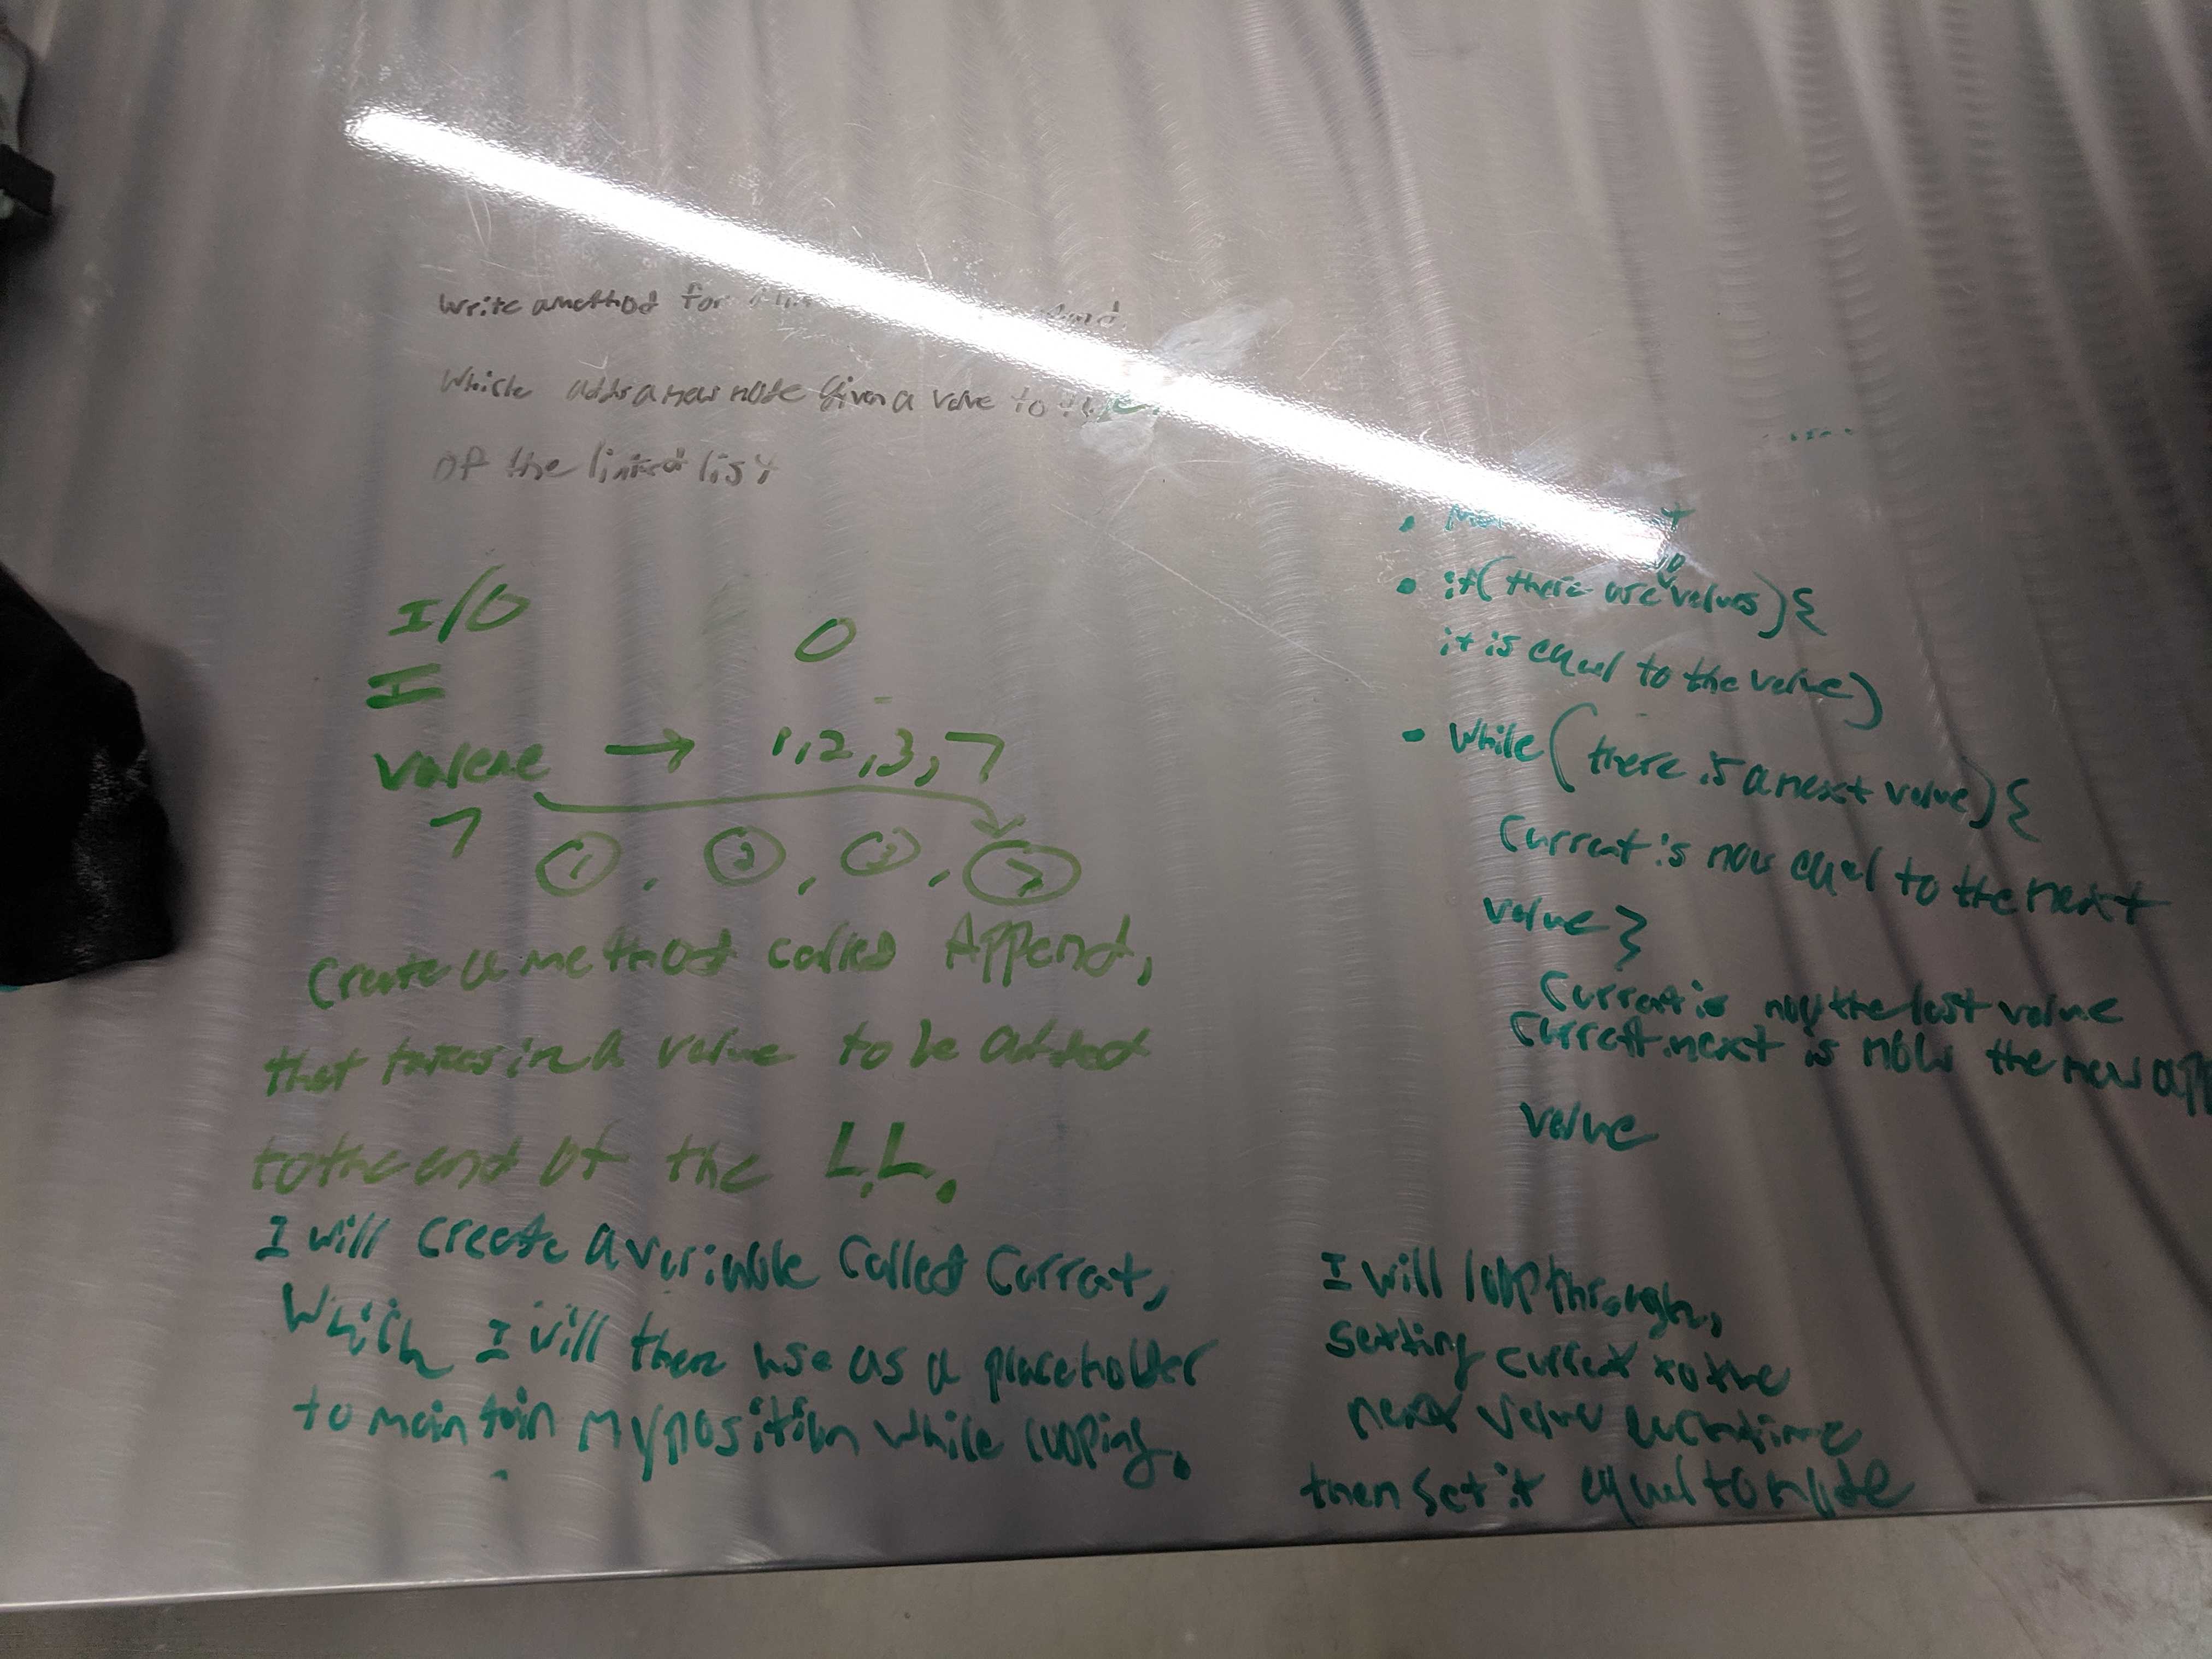 write a method for
which adds a new node given a value to
of the linked list
I/O
O
I
value → 1,2,3,7
7
1, 2, 3, 7
Create a method called Append,
that takes in a value to be added
to the end of the L.L.
I will create a variable called Current,
Which I will then use as a placeholder
to maintain my position while looping.
• if(there are no values){
it is equal to the value)
• While(there is a next value){
Current is now equal to the next
value }
Current is now the last value
Current.next is now the new app
value
I will loop through,
setting current to the
next value
then set it equal to node